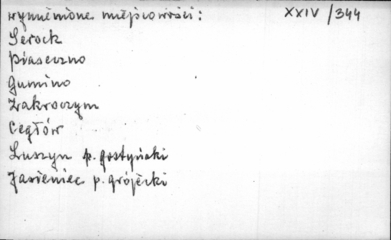 wymienione miejscowości: XXIV/344
Serock
Piaseczno
Gumino
Zakroczym
Cegłów
Luszyn p. gostyński
Jasieniec p. grójecki